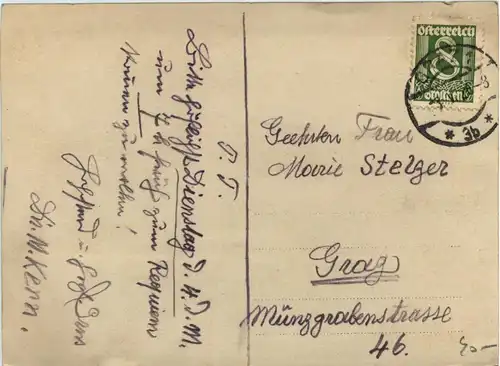 P. T.
Bitte Dienstag d. 4. d. M.
um 7h früh zum Requiem
kommen zu wollen!
Dr. M. Kern.
Österreich
8
Groschen
* 3b *
Geehrten Frau
Marie Stelzer
Graz
Münzgrabenstrasse
46.